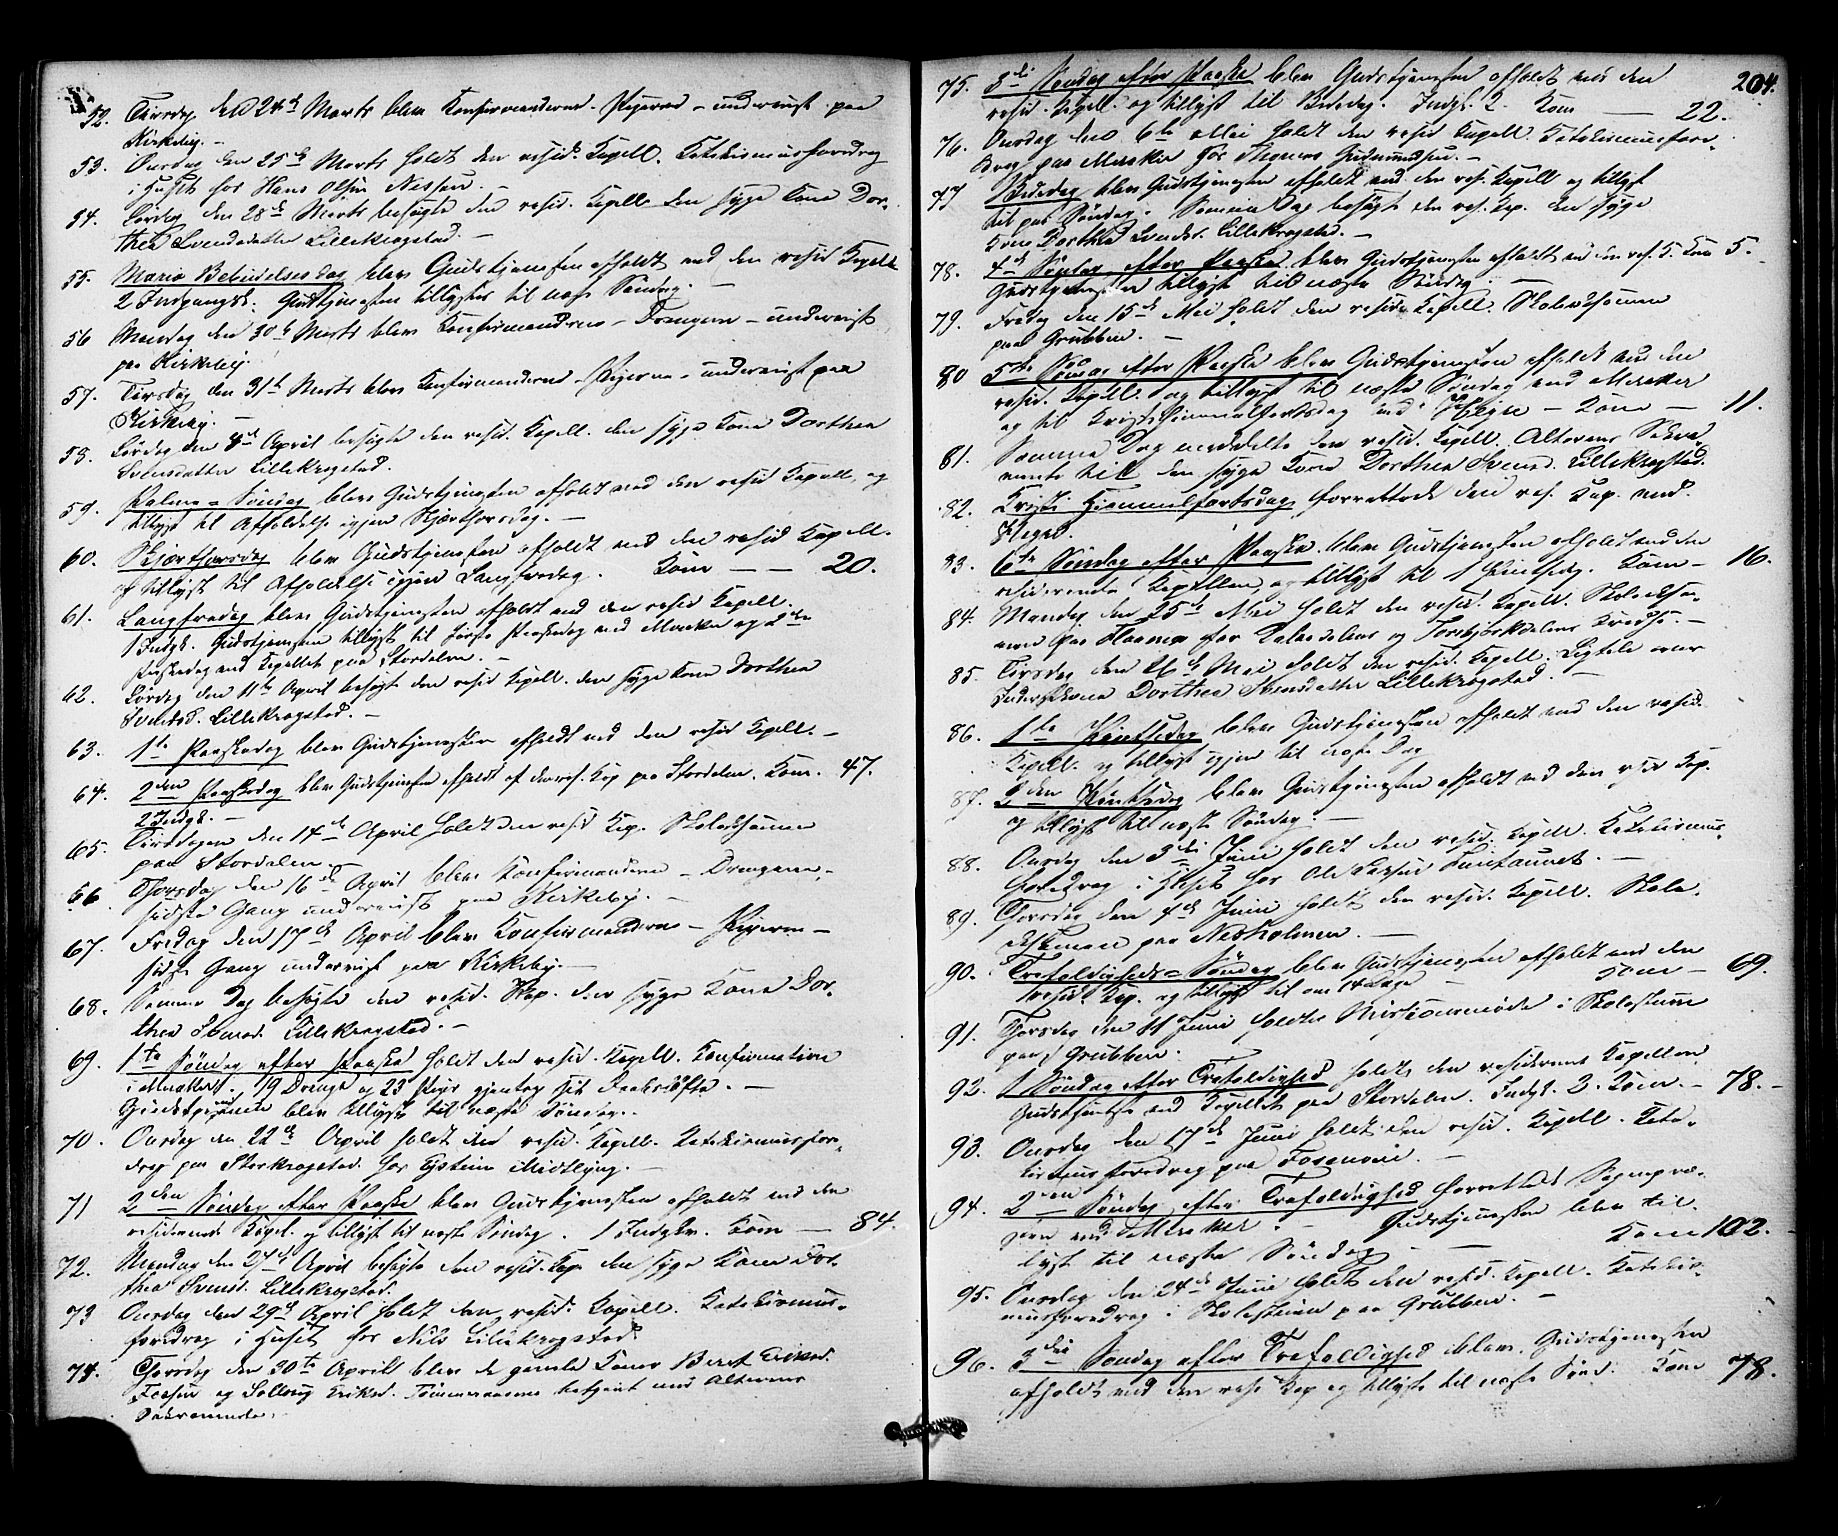 52. Tirsdag den 24de Marts blev Konfirmanderne - Pigerne - underviist paa
Kirkeby. -
53. Onsdag den 25de Marts holdt den resid. Kapell. Katekismusforedrag
i Huset hos Hans Olsen Nessen. -
54. Lørdag den 28de Marts besøgte den resid. Kapell. den syge Kone Dor-
thea Svendsdatter Lillekrogstad. -
55. Maria Bebudelsesdag blev Gudstjenesten afholdt ved den resid Kapell.
2 Indgangsk. Gudstjenesten tillystes til næste Søndag. -
56 Mandag den 30te Marts blev Konfirmanderne - Drengene - underviist
paa Kirkeby.
57. Tirsdag den 31te Marts blev Konfirmanderne - Pigerne - underviist paa
Kirkeby. -
58. Lørdag den 4de April besøgte den resid. Kapell. den syge Kone Dorthea
Svendsdatter Lillekrogstad.
59. Palme-Søndag blev Gudstjenesten afholdt ved den resid Kapell. og
tillyst til Afholdelse igjen Skjærthorsdag. -
60. Skjærthorsdag blev Gudstjenesten afholdt ved den resid Kapell.
og tillyst til Afholdelse igjen Langfredag. Kom. — — 20.
61. Langfredag blev Gudstjenesten afholdt ved den resid Kapell.
1 Indgk. Gudstjenesten tillyst til første Paaskedag ved Meraker og 2den
Paaskedag ved Kapellet paa Stordalen. -
62. Lørdag den 11te April besøgte den resid Kapell. den syge Kone Dorthea
Svendsd. Lillekrogstad. -
63. 1te Paaskedag blev Gudstjenesten afholdt ved den resid Kapell. -
64. 2den Paaskedag blev Gudstjenesten afholdt af den res. Kap paa Stordalen. Kom. 47.
2 Indgk. -
65. Tirsdagen den 14de April holdt den resid Kap. Skoleexamen
paa Stordalen. -
66. Thorsdag den 16de April blev Konfirmanderne - Drengene -
sidste Gang underviist paa Kirkeby. -
67. Fredag den 17de April blev Konfirmanderne - Pigerne -
sidste Gang underviist paa Kirkeby. -
68. Samme Dag besøgte den resid. Kap. den syge Kone Dor-
thea Svendsd. Lillekrogstad. -
69. 1te Søndag efter Paaske holdt den resid. Kapell. Konfirmation
i Meraker. 19 Drenge og 23 Piger gjentog sit Daabsløfte. -
Gudstjenesten blev tillyst til næste Søndag. -
70. Onsdag den 22de April holdt den resid. Kapell. Katekismusfore-
drag paa Storkrogstad hos Eystein Midtlyng. -
71 2den Søndag efter Paaske blev Gudstjenesten afholdt ved den
residerende Kapel. og tillyst til næste Søndag. 1 Indgk. Kom — 84.
72. Mandag den 27de April besøgte den resid. Kap. den syge Kone Dor-
thea Svensd. Lillekrogstad.
73 Onsdag den 29de April holdt den resid. Kapell. Katekismus-
foredrag i Huset hos Nils Lillekrogstad.
74. Thorsdag den 30te April blev de gamle Koner Beret Eriksd.
og Solloug Eriksd. betjent med Alterens
Sakramente.
204.
75. 3die Søndag efter Paaske blev Gudstjenesten afholdt ved den
resid. Kapell. og tillyst til Bededag. Indgk. 2. Kom — 22.
76. Onsdag den 6te Mai holdt den resid Kapell. Katekismusfore-
drag paa Meraker hos Thomas Gudmundsen. -
77 Bededag blev Gudstjenesten afholdt ved den res. Kapell og tillyst
til paa Søndag. Samme Dag besøgte den res. Kap. den syge
Kone Dorthea Svends. Lillekrogstad. -
78. 4de Søndag efter Paaske blev Gudstjenesten afholdt ved den res. K. Kom 5.
Gudstjenesten tillyst til næste Søndag. -
79. Fredag den 15de Mai holdt den resid. Kapell. Skoleexamen
paa Grubben. -
80 5te Søndag efter Paaske blev Gudstjenesten afholdt ved den
resid. Kapell. og tillyst til næste Søndag ved Meraker
og til Kristi Himmelfartsdag ved Hegre - Kom — 11.
81. Samme Dag meddelte den resid. Kapell. Alterens Sakra-
mente til den syge Kone Dorthea Svensd. Lillekrogstad.
82. Kristi Himmelfartsdag forrettede den res. Kap. ved
Hegre.
83. 6te Søndag efter Paaske blev Gudstjenesten afholdt ved den
residerende Kapellan og tillyst til 1 Pintsedg. Kom - 16.
84. Mandag den 25de Mai holdt den resid. Kapell. Skoleexa-
men paa for og Torsbjørkdalens Kredse. -
85. Tirsdag den 26de Mai holdt den resid. Kapell. Ligtale over
Dorthea Svendsdatter Lillekrogstad. -
86. 1te Pintsedag blev Gudstjenesten afholdt ved den resid.
Kapell. og tillyst igjen til næste Dag
87. 2den Pintsedag blev Gudstjenesten afholdt ved den resid Kap.
og tillyst til næste Søndag. -
88. Onsdag den 3die Juni holdt den resid. Kapell. Katekismus-
foredrag i Huset hos Ole Larsen -
89. Thorsdag den 4de Juni holdt den resid. Kapell. Skole-
examen paa Nesholmen. -
90. Trefoldigheds-Søndag blev Gudstjenesten afholdt ved den
resid. Kap. og tillyst til om 14 Dage Kom - 69.
91. Thorsdag den 11 Juni holdtes Missionsmøde i Skolestuen
paa Grubben. -
92. 1 Søndag efter Trefoldighed holdt den residerende Kapellan
Gudstjeneste ved Kapellet paa Stordalen. Indgk. 2. Kom. - 78. -
93. Onsdag den 17de Juni holdt den resid. Kapell. Kate-
kismusforedrag paa Fossmoen. -
94. 2den Søndag efter Trefoldighed forrettede Sognepræ-
sten ved Meraker. - Gudstjenesten blev til-
lyst til næste Søndag. - Kom 102. -
95. Onsdag den 24de Juni holdt den resid. Kapell. Katekis-
musforedrag i Skolestuen paa Grubben. -
96. 3die Søndag efter Trefoldighed blev Gudstjenesten
afholdt ved den resi Kap og tillyst til næste Sønd. Kom 78.